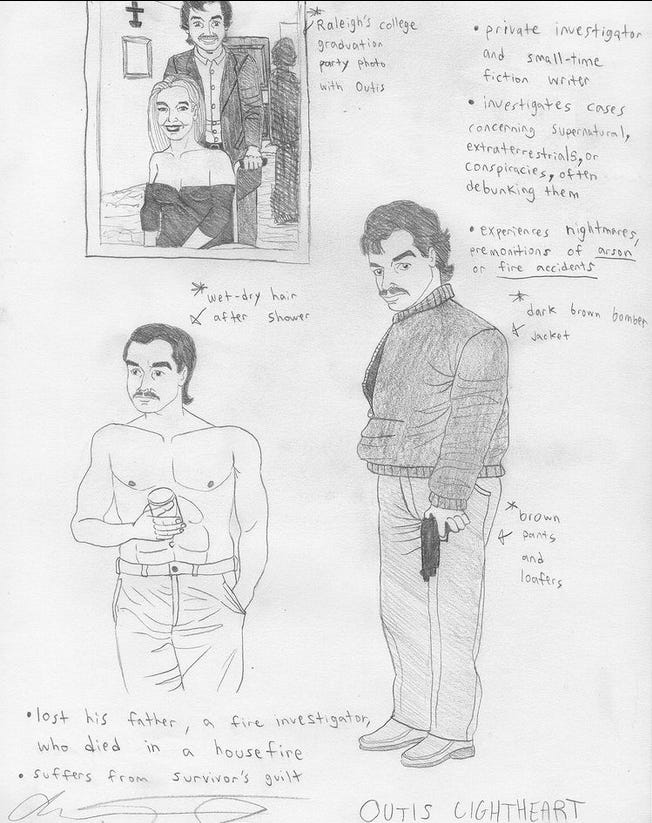 *Raleigh's college
graduation
party photo
with Outis
• private investigator
and small-time
fiction writer
• investigates cases
concerning supernatural,
extraterrestrials, or
conspiracies, often
debunking them
• experiences nightmares,
premonitions of arson
or fire accidents
*wet-dry hair
after shower
*dark brown bomber
jacket
*brown
pants
and
loafers
• lost his father, a fire investigator,
who died in a housefire
• suffers from survivor's guilt
OUTIS LIGHTHEART